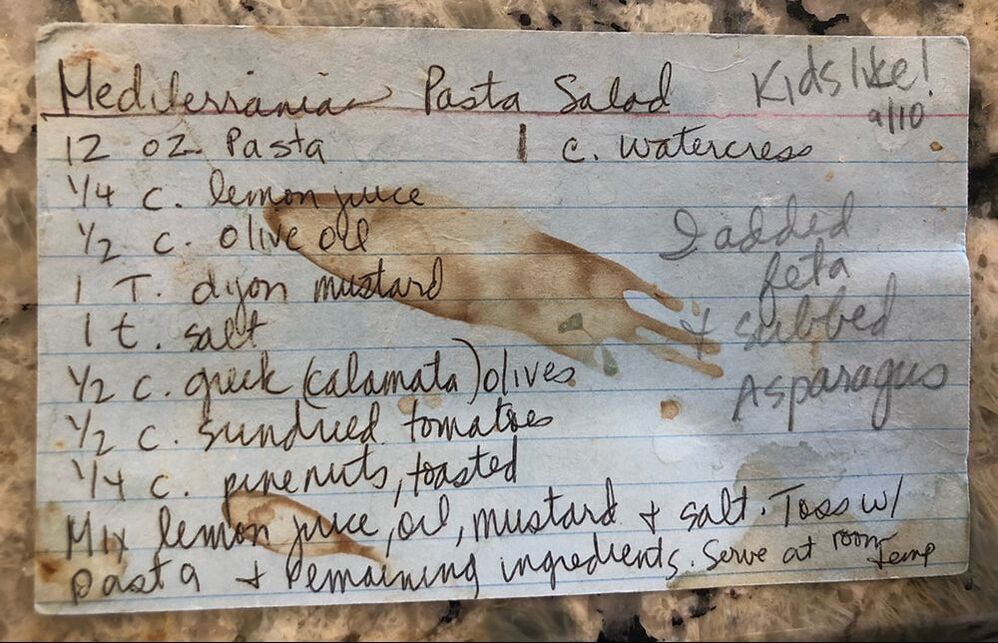 Mediterranian Pasta Salad
Kids like!
9/10
12 oz. Pasta
1 c. watercress
1/4 c. lemon juice
1/2 c. olive oil
1 T. dijon mustard
1 t. salt
1/2 c. greek (calamata) olives
1/2 c. sundried tomatoes
1/4 c. pinenuts, toasted
I added
feta
+ subbed
Asparagus
Mix lemon juice, oil, mustard + salt. Toss w/
pasta + remaining ingredients. Serve at room temp